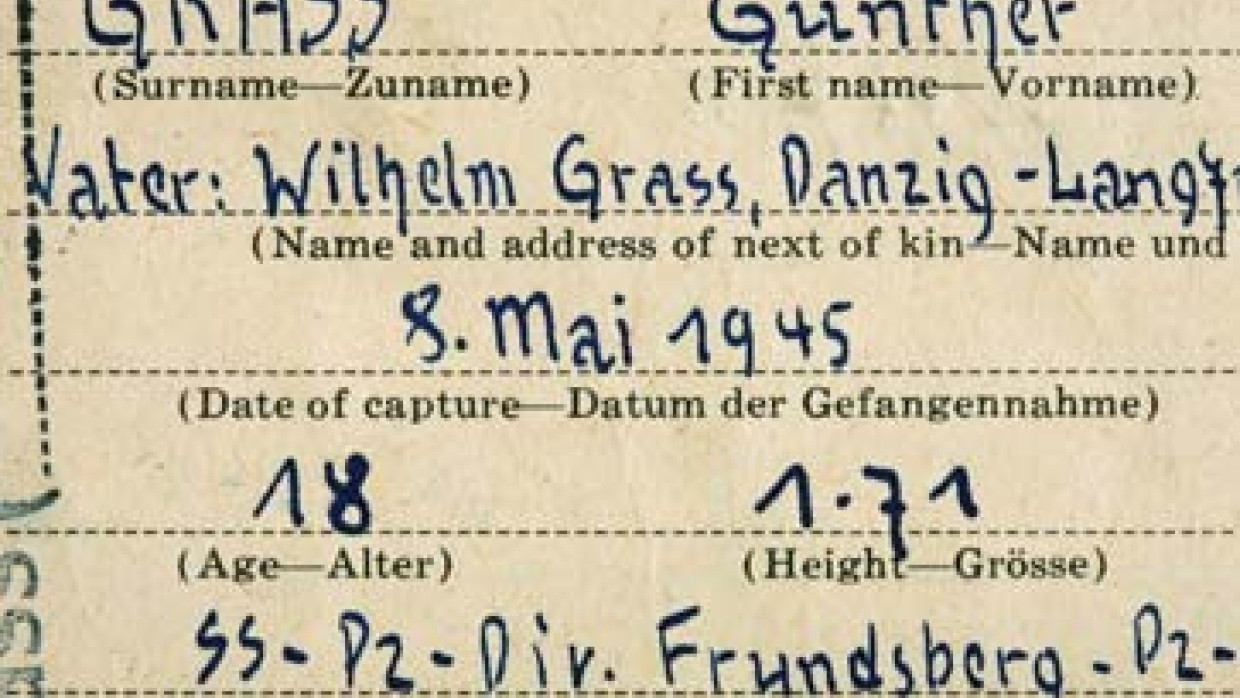 GRASS Günther
(Surname—Zuname) (First name—Vorname)
Vater: Wilhelm Grass, Danzig-Langf
(Name and address of next of kin—Name und
8. Mai 1945
(Date of capture—Datum der Gefangennahme)
18 1.71
(Age—Alter) (Height—Grösse)
SS-Pz-Div. Frundsberg-Pz-